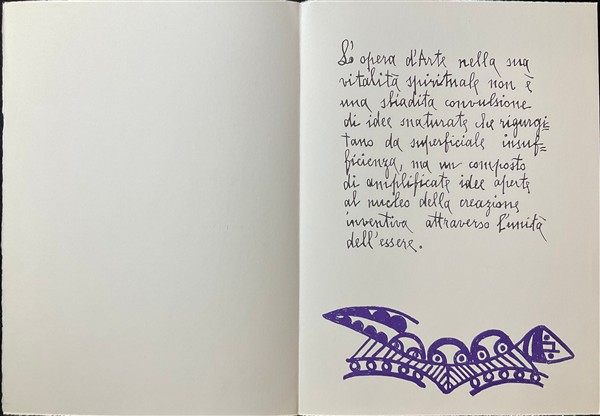 L'opera d'Arte nella sua
vitalità spirituale non è
una sbiadita convulsione
di idee snaturate che rigurgi=
tano da superficiale insuf=
ficienza, ma un composto
di amplificate idee aperte
al nucleo della creazione
inventiva attraverso l'unità
dell'essere.